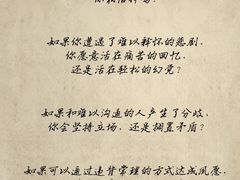 如果你遭遇了难以释怀的悲剧,
你愿意活在痛苦的回忆,
还是活在轻松的幻觉?
如果和难以沟通的人产生了分歧,
你会坚持立场,还是搁置矛盾?
如果可以通过违背常理的方式达成夙愿,